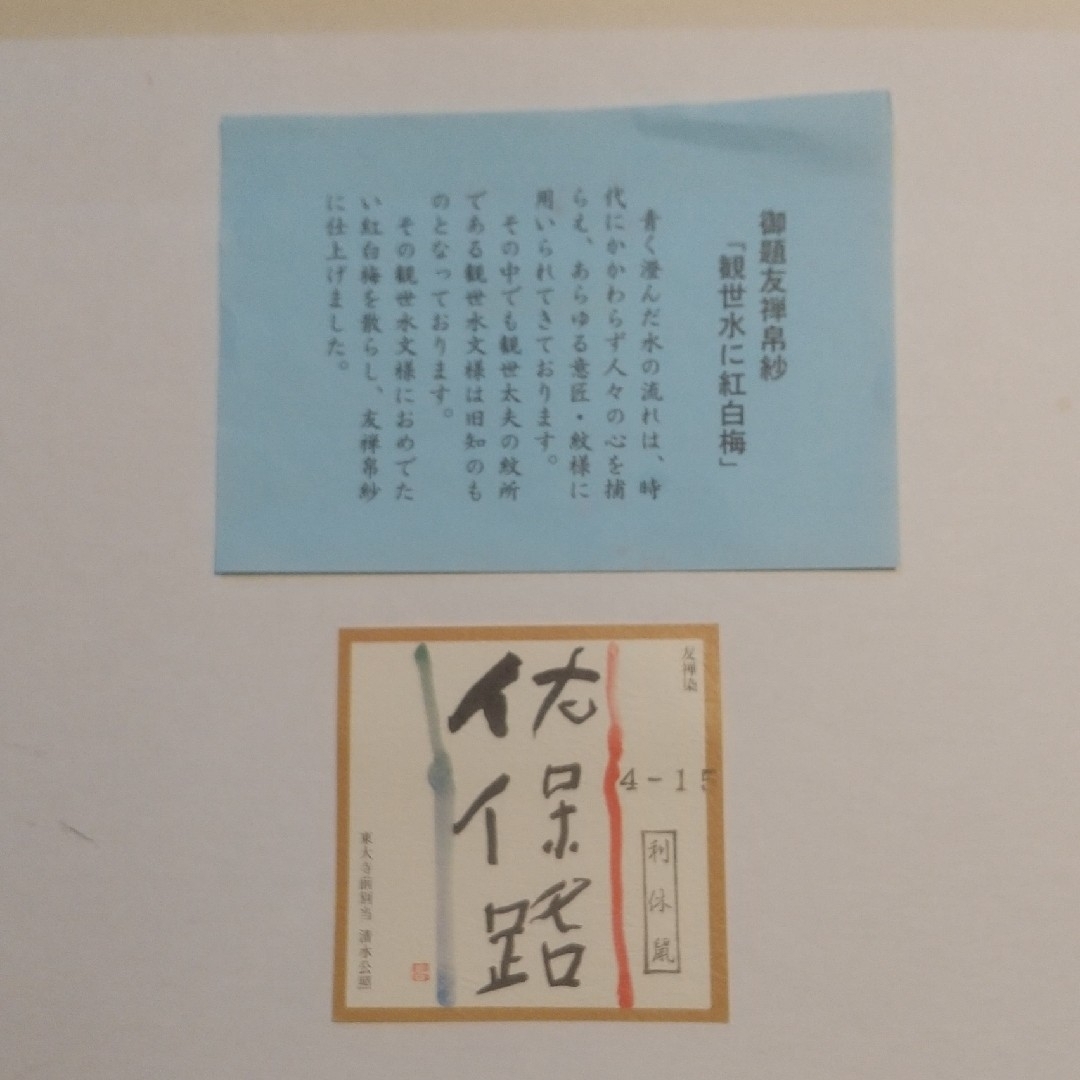 御題友禅帛紗
「観世水に紅白梅」
青く澄んだ水の流れは、時
代にかかわらず人々の心を捕
らえ、あらゆる意匠・紋様に
用いられてきております。
その中でも観世太夫の紋所
である観世水文様は旧知のも
のとなっております。
その観世水文様におめでた
い紅白梅を散らし、友禅帛紗
に仕上げました。
友禅染
4-15
利休鼠
佐保路
東大寺前別当 清水公照